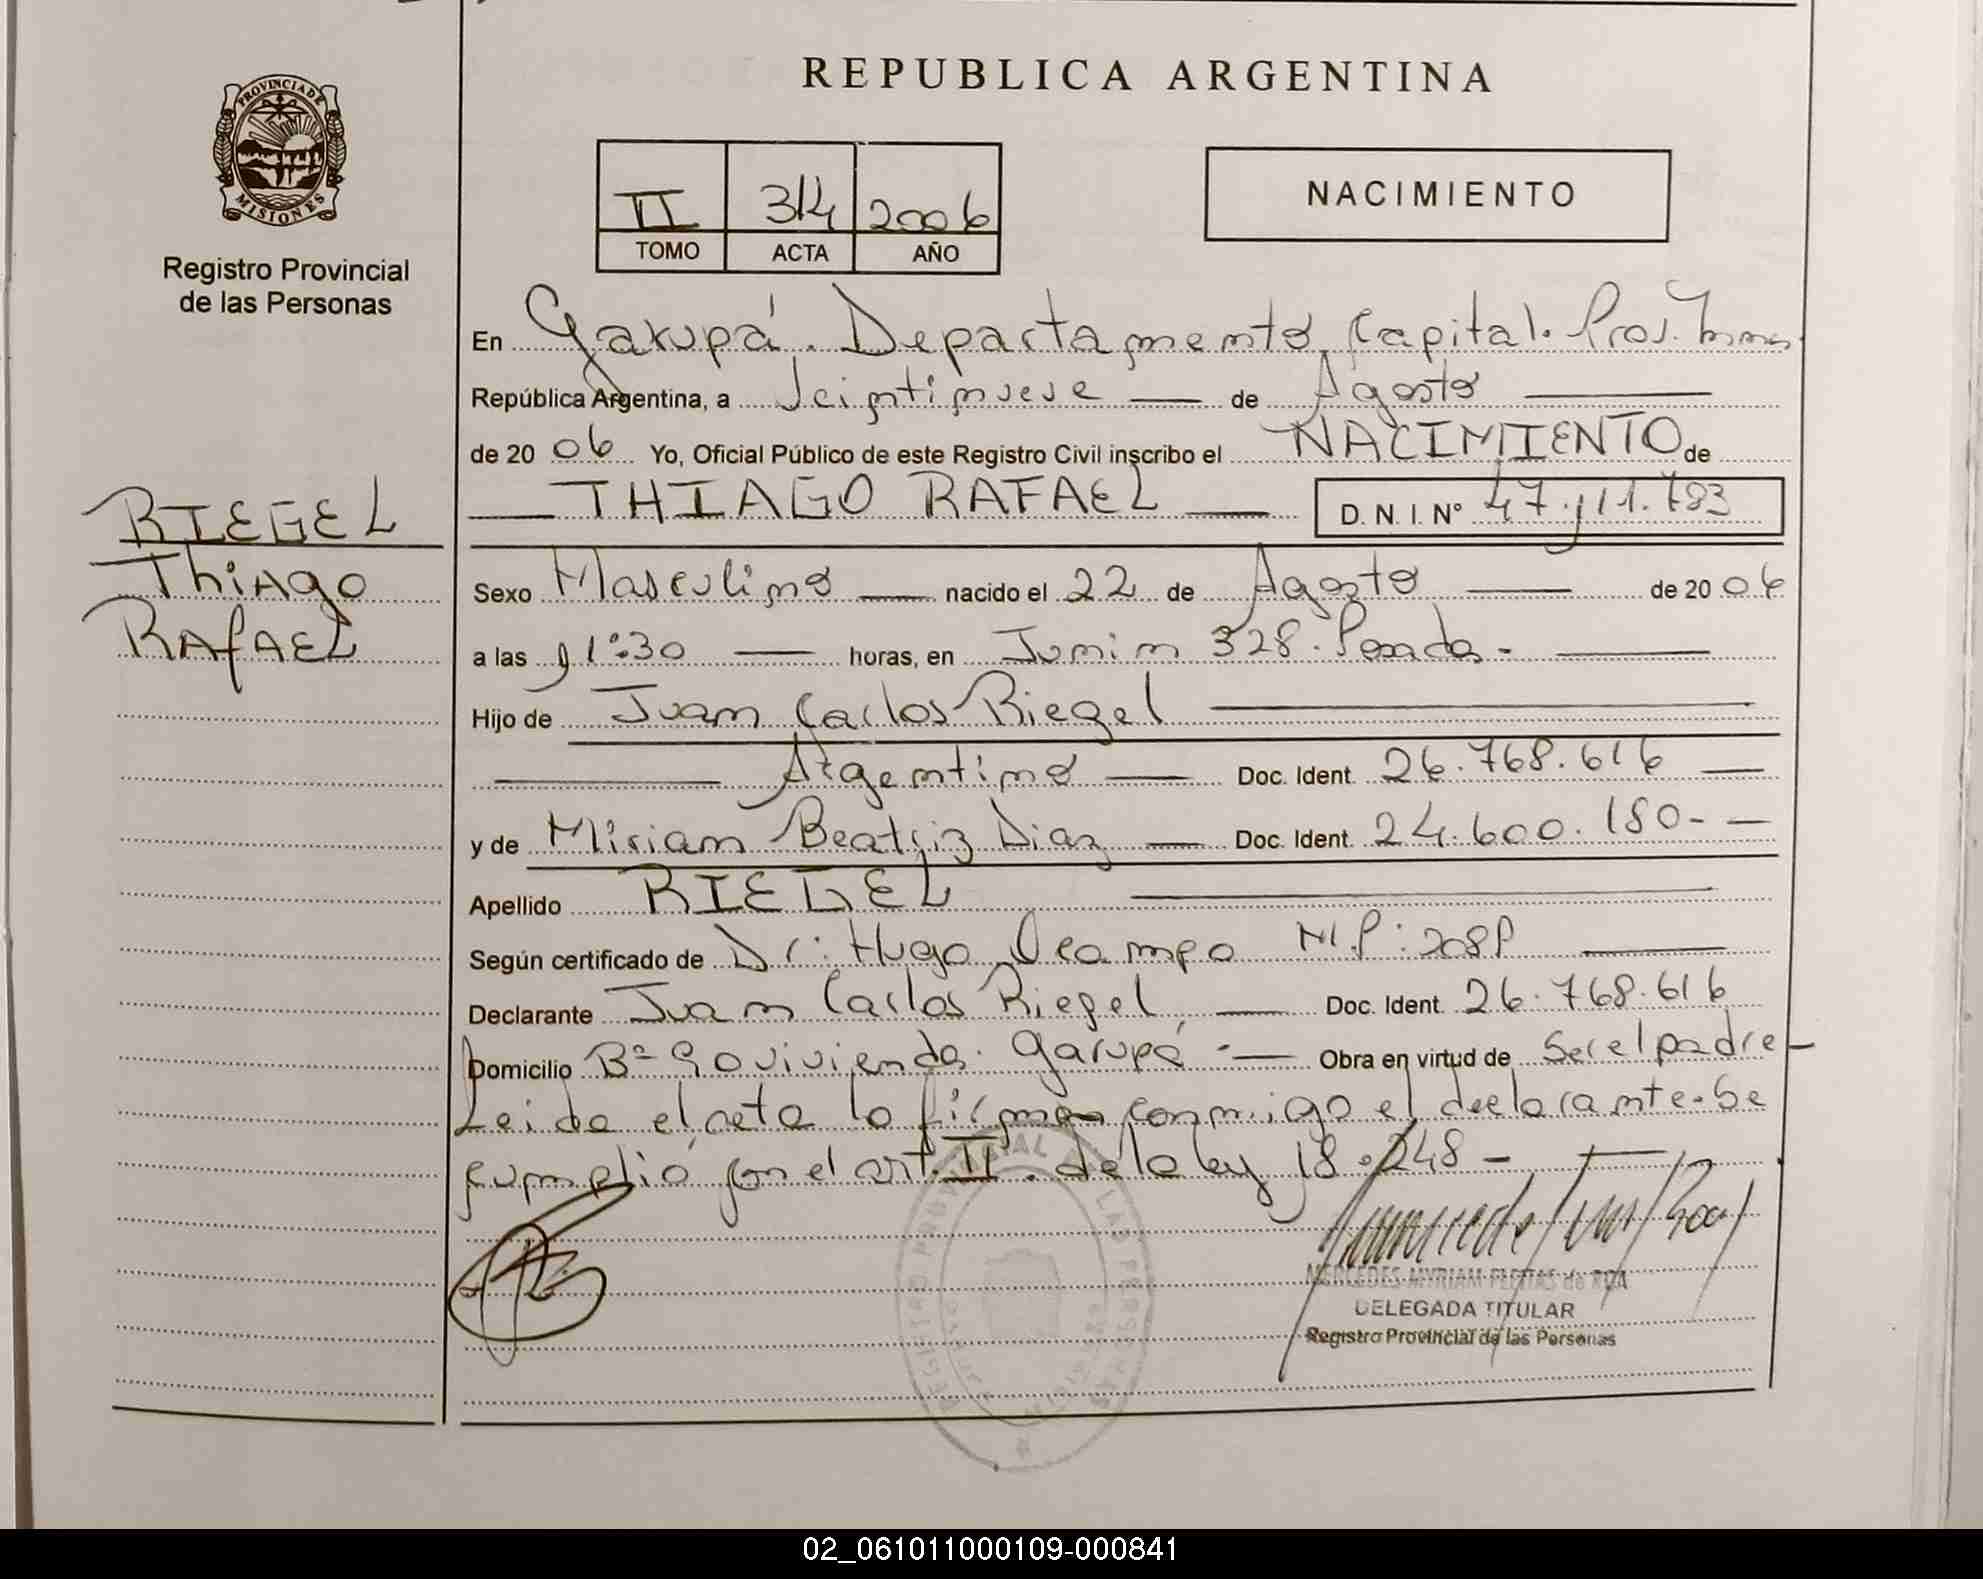 REPUBLICA ARGENTINA
PROVINCIA DE MISIONES
Registro Provincial
de las Personas
II 314 2006
TOMO ACTA AÑO
NACIMIENTO
En Garupá. Departamento Capital. Prov. Mnes
República Argentina, a Veintinueve de Agosto
de 20 06 Yo, Oficial Público de este Registro Civil inscribo el NACIMIENTO de
THIAGO RAFAEL D. N. I. Nº 47.111.783
RIEGEL
Thiago
RAfAEL
Sexo Masculino nacido el 22 de Agosto de 20 06
a las 11:30 horas, en Junin 328. Posadas -
Hijo de Juan Carlos Riegel
Argentino Doc. Ident. 26.768.616
y de Miriam Beatriz Diaz Doc. Ident. 24.600.180-
Apellido RIEGEL
Según certificado de Dr: Hugo Ocampo M.P: 208P
Declarante Juan Carlos Riegel Doc. Ident. 26.768.616
Domicilio Bº Sovivienda. Garupá - Obra en virtud de Ser el padre
Leida el acta la firma conmigo el declarante. Se
cumplió con el art. II. de la ley 18.248 -
MERCEDES MYRIAM FLEITAS de ROA
DELEGADA TITULAR
Registro Provincial de las Personas
02_061011000109-000841